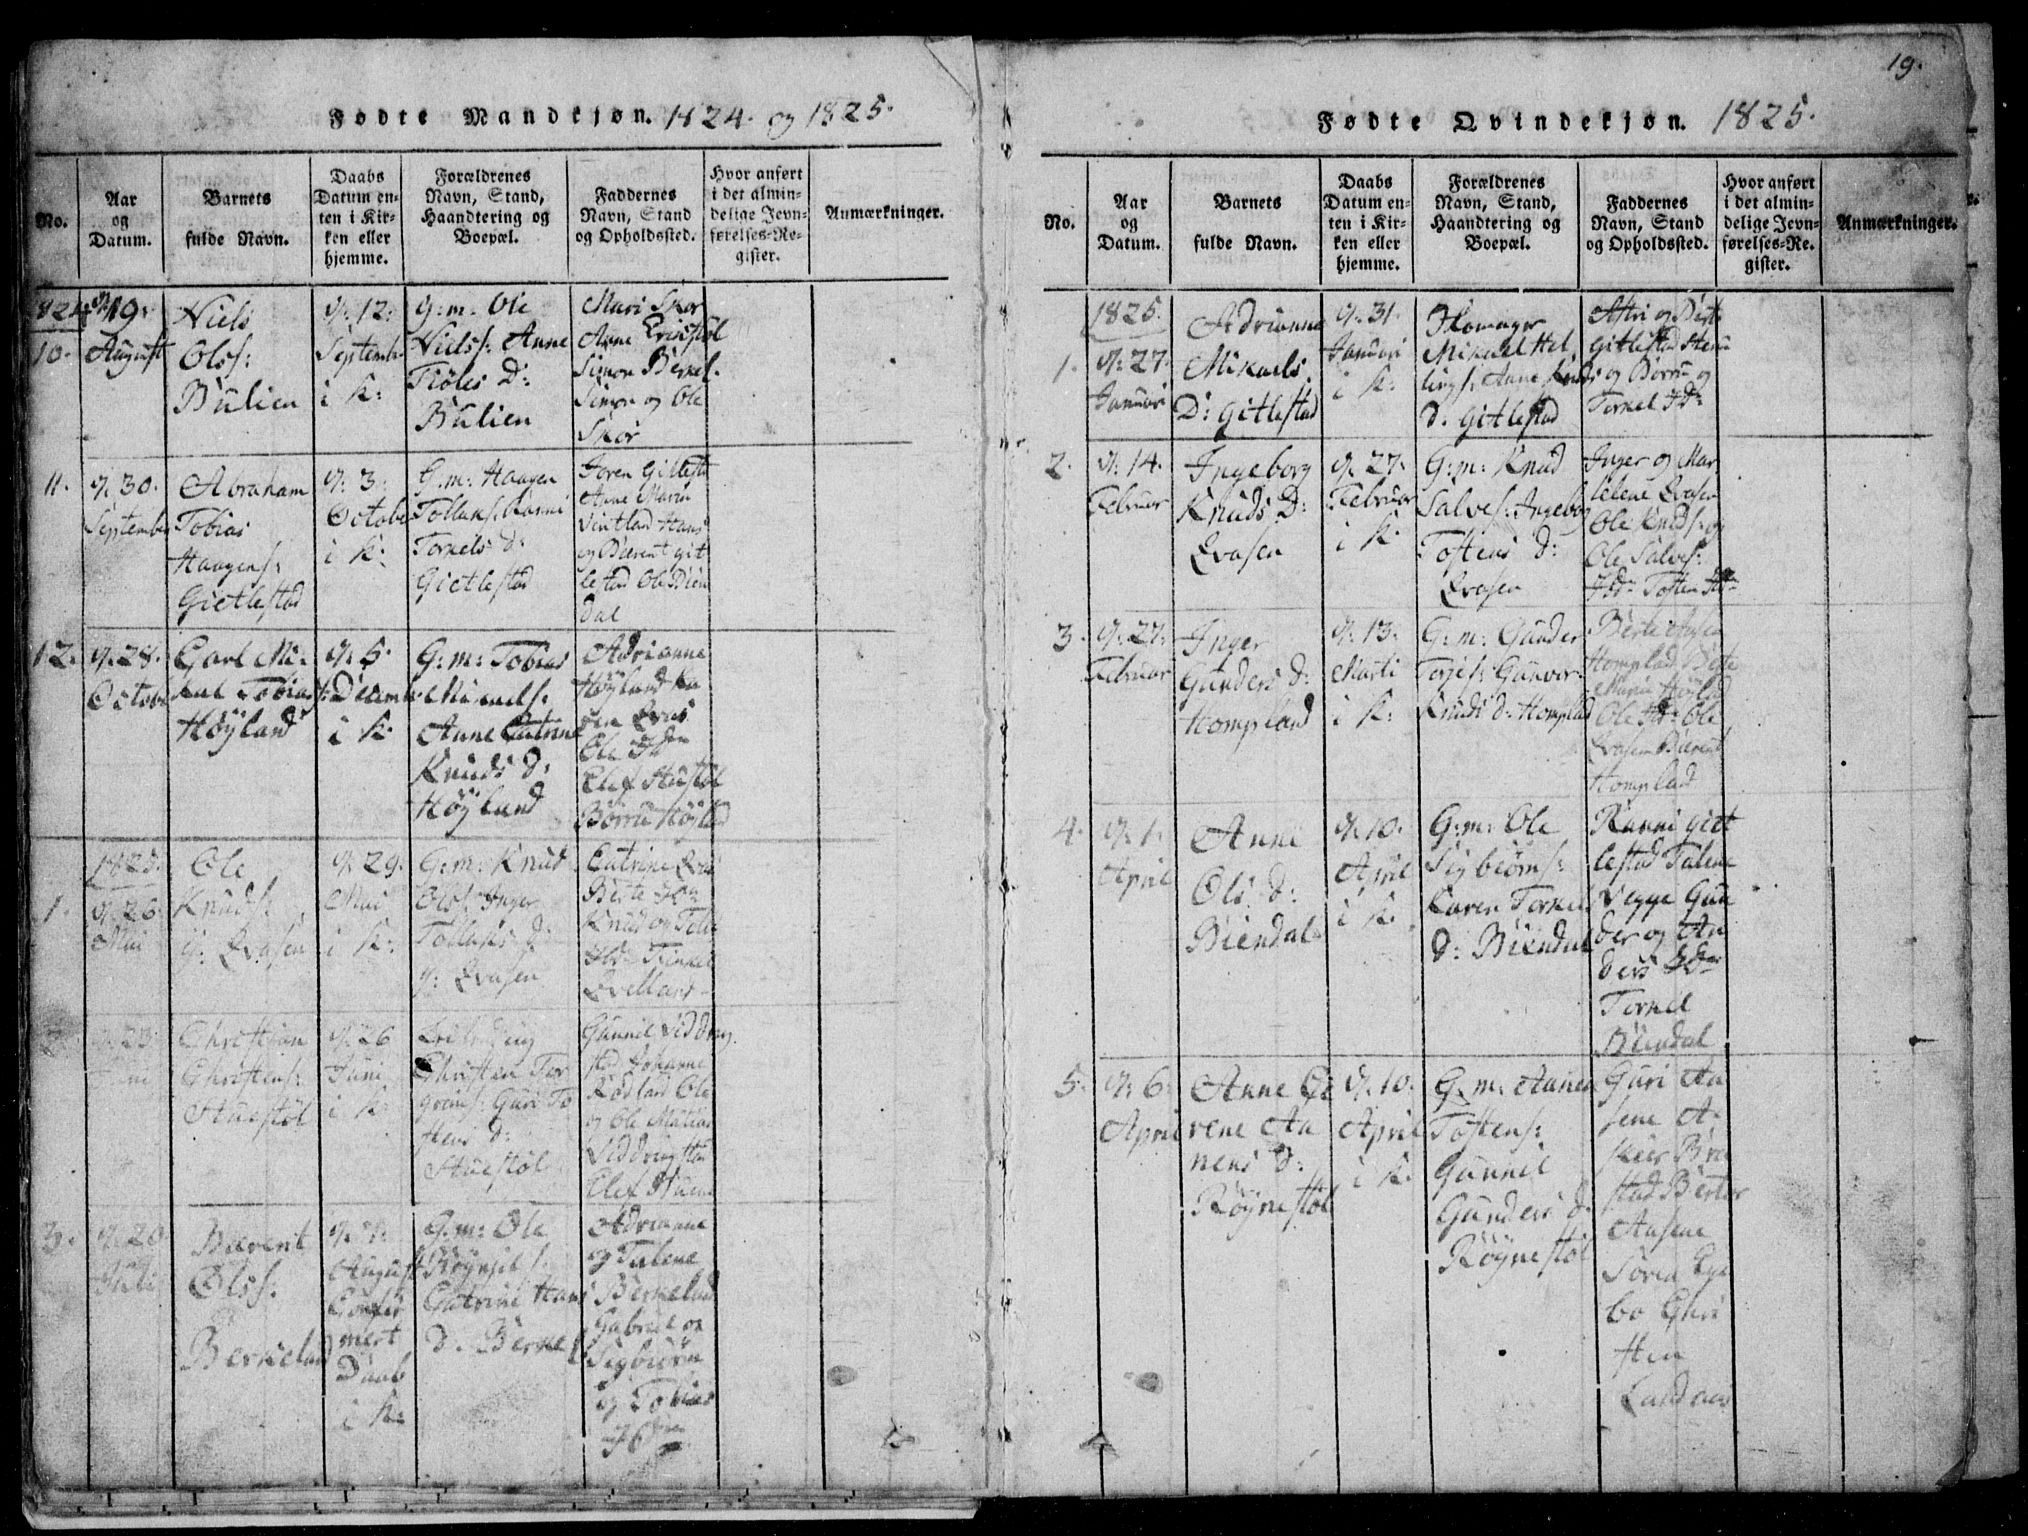 Fødte Mandkjøn. 1824. og 1825.
No.
Aar
og
Datum.
Barnets
fulde Navn.
Daabs
Datum en-
ten i Kir-
ken eller
hjemme.
Forældrenes
Navn, Stand,
Haandtering og
Boepæl.
Faddernes
Navn, Stand
og Opholdssted.
Hvor anført
i det almin-
delige Jevn-
førelses-Re-
gister.
Anmærkninger.
1824
10.
19.
August
Niels
Ols s:
Bulien
d: 12:
Septembr
i K:
G: m: Ole
Niels s: Anne
Tiøls D:
Bulien
Mari Skor
Anne
Simon Birkel.
Simon og Ole
Skor
11.
d: 30.
September
Abraham
Tobias
Haagens s:
Gietlestad
d: 3.
October
i K:
G: m: Haagen
Tollaks s: Ranni
Tornels d:
Gietlestad
Joren Gitlestd
Anne Marin
Vintlad Hans
og Bærent git
lestad Ole Bien
dal
12.
d: 28.
Octobr
Carl Mi-
kal Tobias s:
Høyland
d: 5.
Decembr
i K.
G: m: Tobias
Mikaels s:
Anne Catrine
Knuds d:
Høyland
Adrianne
Høyland Ka
ren
Ole Id
Elef Stustøl
Børre Høylad
1825.
1.
d: 26.
Mai
Ole
Knuds s:
Qvasen
d: 29.
Mai
i K:
G: m: Knud
Ols s: Inger
Tollaks d:
Qvasen
Catrine
Berte
Knud og
d: 23
Juni
Christian
Christens s:
Stuestøl
d: 26
Juni
i K:
Christen Tor
Guri To
stens d:
Stuestøl
Gunnil
Johanne
Rødland Ole
og Ole Matias
Elef
3.
d: 20
Juli
Bærent
Ols s:
Berkeland
August
Confir
mert
Daab
i K:
G: m: Ole
Catrine Hans
d. Berkel
Adrianne
og Talene
Berkelad
Gabriel og
Sigbiørn
og Tobias
19.
Fødte Qvindekjøn. 1825.
No.
Aar
og
Datum.
Barnets
fulde Navn.
Daabs
Datum en-
ten i Kir-
ken eller
hjemme.
Forældrenes
Navn, Stand,
Haandtering og
Boepæl.
Faddernes
Navn, Stand
og Opholdssted.
Hvor anført
i det almin-
delige Jevn-
førelses-Re-
gister.
Anmærkninger.
1825.
1.
d: 27.
Januari
Adrianne
Mikaels
D: Gitlestad
d: 31.
Januari
i K:
Skomager
Mikael Hel
lings s: Anne Knuds
d. Gitlestad
Astri og Berte
Gitlestad
og Børre og
Tornel Id
2.
d: 14.
Februar
Ingeborg
Knuds D:
Qvasen
d: 27.
Februar
i K.
G: m: Knud
Salves s: Ingebog
Tostens d:
Qvasen
Inger og Mar
lelene Qvasen
Ole Knuds s: og
Ole Salves s:
Id Tosten Id
3.
d: 27:
Februar
Inger
Gunders d:
Hompland
d: 13.
Marti
i K:
G: m: Gunder
Torjes s: Gunvor
Knuds d: Homplad
Berte Aasen
Homplad Berte
Marie Høylad
Ole Id Ole
Qvasen Bærent
Homplad
4.
d: 1.
April
Anne
Ols d:
Biendal
d: 10.
April
i K.
G: m: Ole
Sigbiørns s:
Karen Tornels
d: Biendal
Ranni giet
lestad Talene
Vegge Gun
der og An
ders Id
Tornel
Biendal
5.
d: 6:
April
Anne Se
rene Aa
nens d:
Røynestøl
d: 10.
April
i K.
G: m: Aanen
Tostens s:
Gunnil
Gunders d.
Røynestøl
Guri Aa
sene A
Bra
stad Berte
Aasene
Søren Ege
bo Chri
sten
Landaas